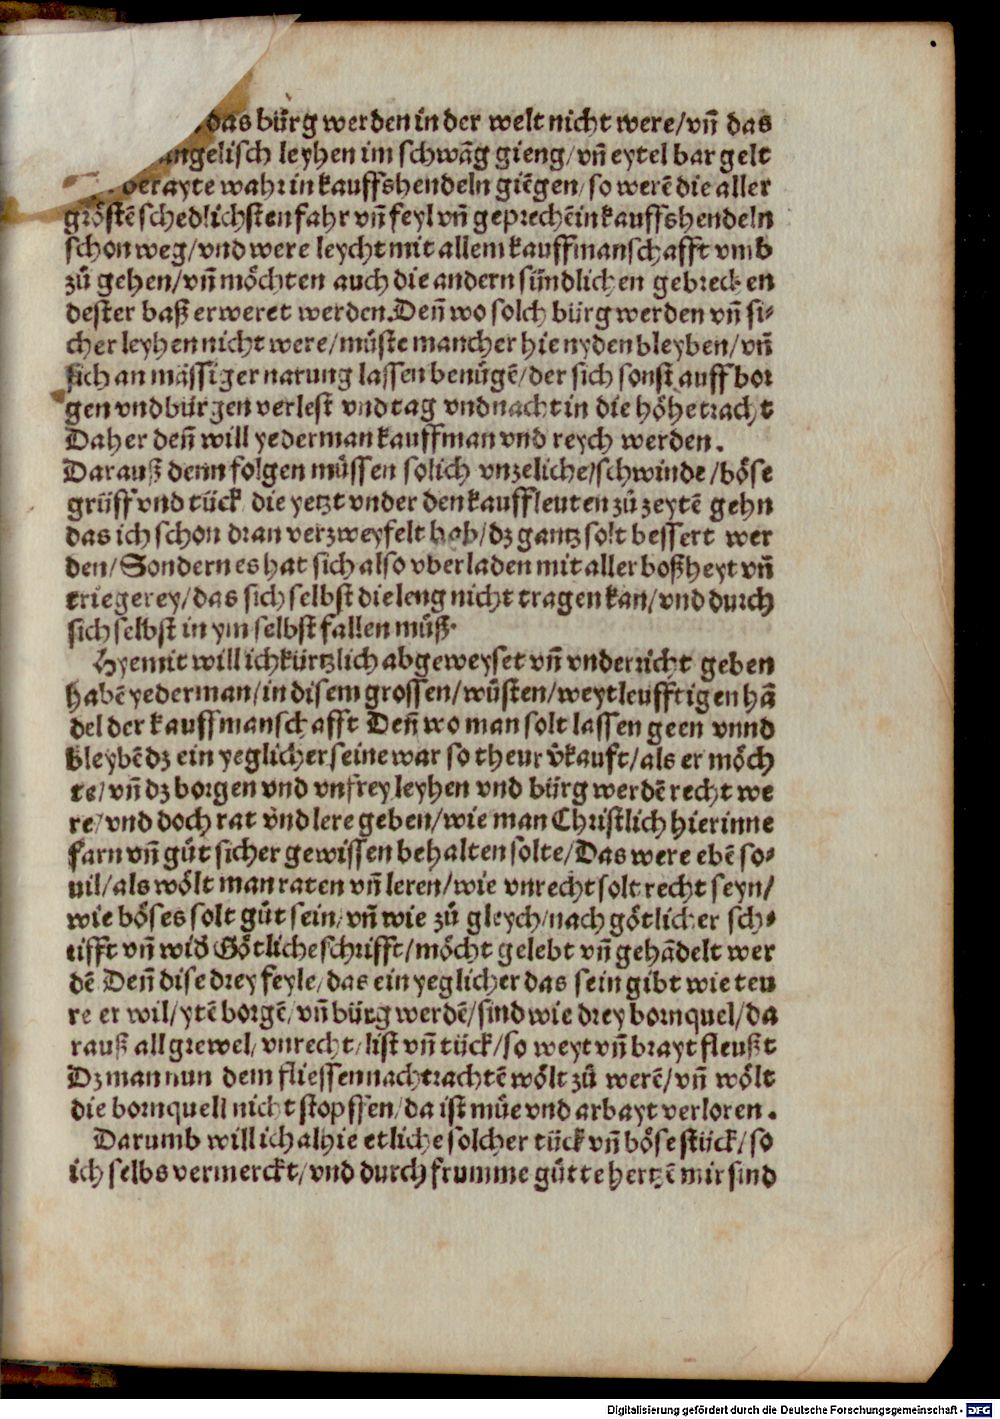 das bürg werden in der welt nicht were/ vñ das
angelisch leyhen im schwãg gieng/ vñ eytel bar gelt
berayte wahr in kauffshendeln giẽgen/ so werẽ die aller
gröstẽ schedlichsten fahr vñ feyl vñ geprechẽ in kauffshendeln
schon weg/ vnd were leycht mit allem kauffmanschafft vmb
zů gehen/ vñ möchten auch die andern sündlichen gebrecken
dester baß erweret werden. Deñ wo solch bürg werden vñ si-
cher leyhen nicht were/ můste mancher hie nyden bleyben/ vñ
sich an mässiger narung lassen benůgẽ/ der sich sonst auff bor
gen vnd bürgen verlest vnd tag vnd nacht in die höhe tracht
Daher deñ will yederman kauffman vnd reych werden.
Darauß denn folgen müssen solich vnzeliche/ schwinde/ böse
grüff vnd tück die yetzt vnder den kauffleuten zů zeytẽ gehn
das ich schon dran verzweyfelt hab/ dz gantz solt bessert wer
den/ Sondern es hat sich also vberladen mit aller boßheyt vñ
triegerey/ das sich selbst die leng nicht tragen kan/ vnd durch
sich selbst in ym selbst fallen můß.
Hyemit will ich kürtzlich abgeweyset vñ vnderricht geben
habẽ yederman/ in disem grossen/ wůsten/ weytleufftigen hã
del der kauffmanschafft Deñ wo man solt lassen geen vnnd
bleybẽ dz ein yeglicher seine war so theur v̊kauft/ als er möch
te/ vñ dz borgen vnd vnfrey leyhen vnd bürg werdẽ recht we
re/ vnd doch rat vnd lere geben/ wie man Christlich hierinne
farn vñ gůt sicher gewissen behalten solte/ Das were ebẽ so-
uil/ als wölt man raten vñ leren/ wie vnrecht solt recht seyn/
wie böses solt gůt sein/ vñ wie zů gleych/ nach götlicher sch-
rifft vñ wid̾ Götliche schrifft/ möcht gelebt vñ gehãdelt wer
dẽ Deñ dise drey feyle/ das ein yeglicher das sein gibt wie teu
re er wil/ ytẽ borgẽ/ vñ bürg werdẽ/ sind wie drey bornquel/ da
rauß all grewel/ vnrecht/ list vñ tück/ so weyt vñ brayt fleußt
Dz man nun dem fliessen nachtrachtẽ wölt zů werẽ/ vñ wölt
die bornquell nicht stopffen/ da ist müe vnd arbayt verloren.
Darumb will ich alhie etliche solcher tück vñ böse stück/ so
ich selbs vermerckt/ vnd durch frumme gůtte hertzẽ mir sind
Digitalisierung gefördert durch die Deutsche Forschungsgemeinschaft - DFG